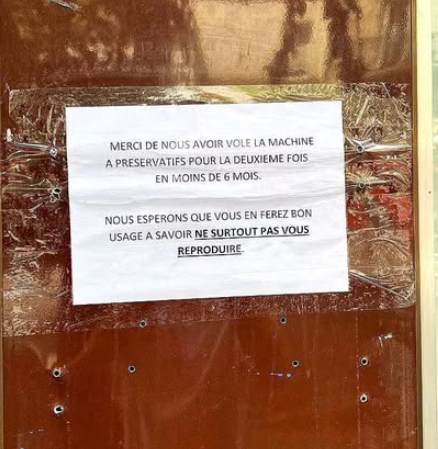 MERCI DE NOUS AVOIR VOLE LA MACHINE
A PRESERVATIFS POUR LA DEUXIEME FOIS
EN MOINS DE 6 MOIS.
NOUS ESPERONS QUE VOUS EN FEREZ BON
USAGE A SAVOIR NE SURTOUT PAS VOUS
REPRODUIRE.